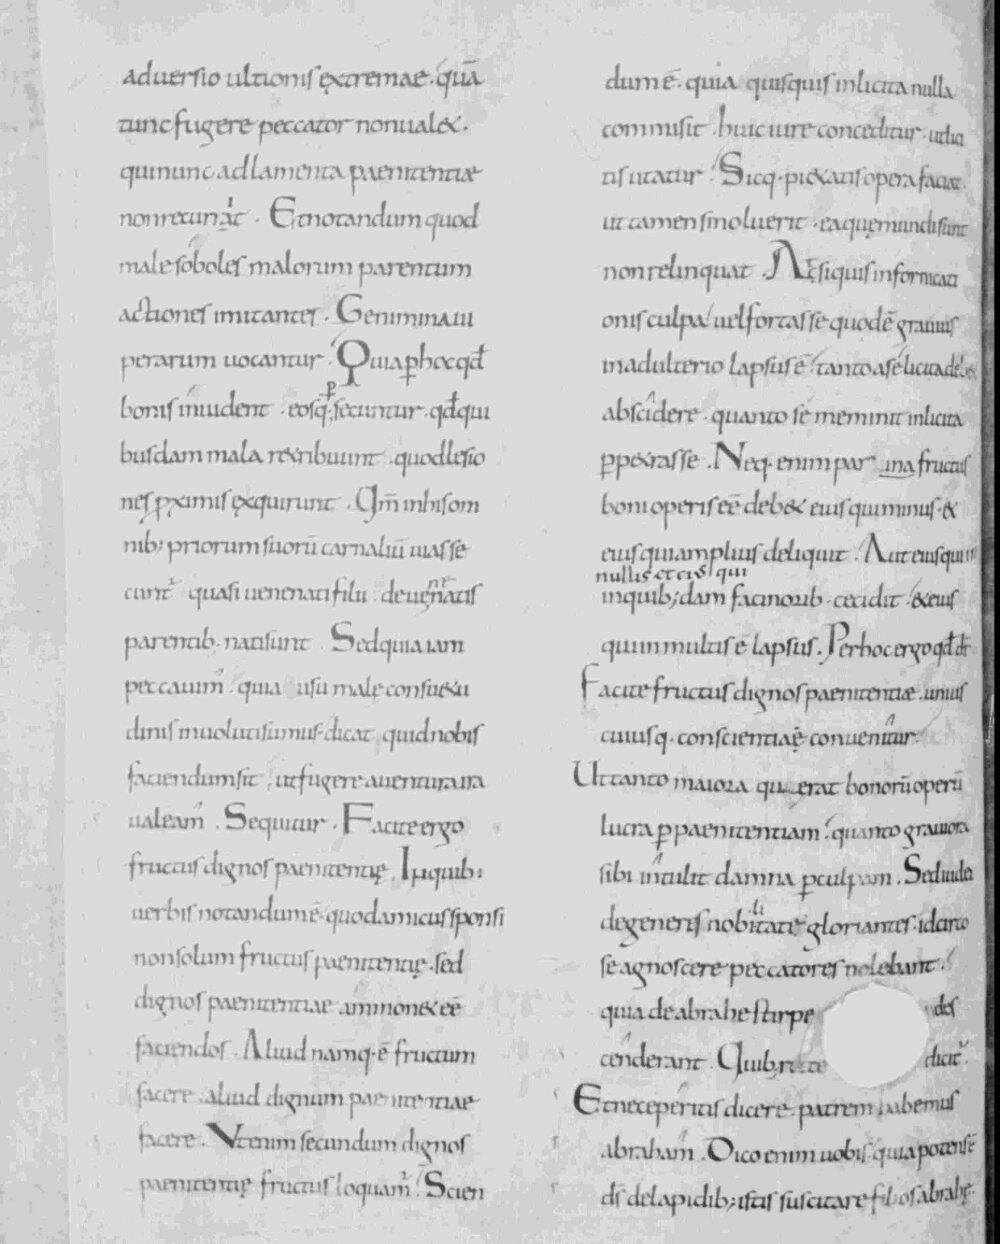 aduersio ultionis extremae. quā
tunc fugere peccator non ualet.
qui nunc ad lamenta paenitentiae
non recurrat. Et notandum quod
male soboles malorum parentum
actiones imitantes. Genimina ui
perarum uocantur. Quia p hoc qđ
bonis inuident. eosq; persecuntur. qđ qui
busdam mala retribuunt. quod lesio
nes proximis exquirunt. Qm̄ in his om
nib; priorum suorū carnaliū uias se
cunt᷒ quasi uenenati filii. de uenenatis
parentib. nati sunt. Sed quia iam
peccauim᷒. quia usu malę consuetu
dinis inuoluti sumus. dicat quid nobis
faciendum sit ut fugere a uentura ira
ualeam᷒. Sequitur. Facite ergo
fructus dignos paenitentię. In quib;
uerbis notandum ē. quod amicus sponsi
non solum fructus paenitentię. sed
dignos paenitentiae ammonet eē
faciendos. Aliud namq. ē fructum
facere. aliud dignum paenitentiae
facere. Vt enim secundum dignos
paenitentię fructus loquam᷒. Scien
dum ē. quia quisquis inlicita nulla
commisit. huic iure conceditur. ut lici
tis utatur. Sicq. pietatis opera faciat.
ut tamen si noluerit. ea quę mundi sunt
non relinquat. At si quis in fornicati
onis culpa uel fortasse quod ē grauius
in adulterio lapsus ē. tanto a se licita debet
abscidere. quanto se meminit inlicita
ppetrasse. Neq. enim par fructus
boni operis eē debet eius qui minus. et
eius qui amplius deliquit. Aut eius qui in
nullis et eius qui
in quib;dam facinorib. cecidit. et eius
qui in multis ē lapsus. Per hoc ergo qđ dr̄
Facite fructus dignos paenitentiae. unius
cuiusq. conscientiaę conuenitur.
Ut tanto maiora querat bonorū operū
lucra p paenitentiam. quanto grauiora
sibi intulit damna p culpam. Sed iudei
de generis nobilitate gloriantes. idcirco
se agnoscere peccatores nolebant.
quia de abrahe stirpe des
cenderant. Quib; recte dicit᷒.
Et ne ceperitis dicere. patrem habemus
abraham. Dico enim uobis quia potens ē
ds̄ de lapidib; istis suscitare filios abrahę.